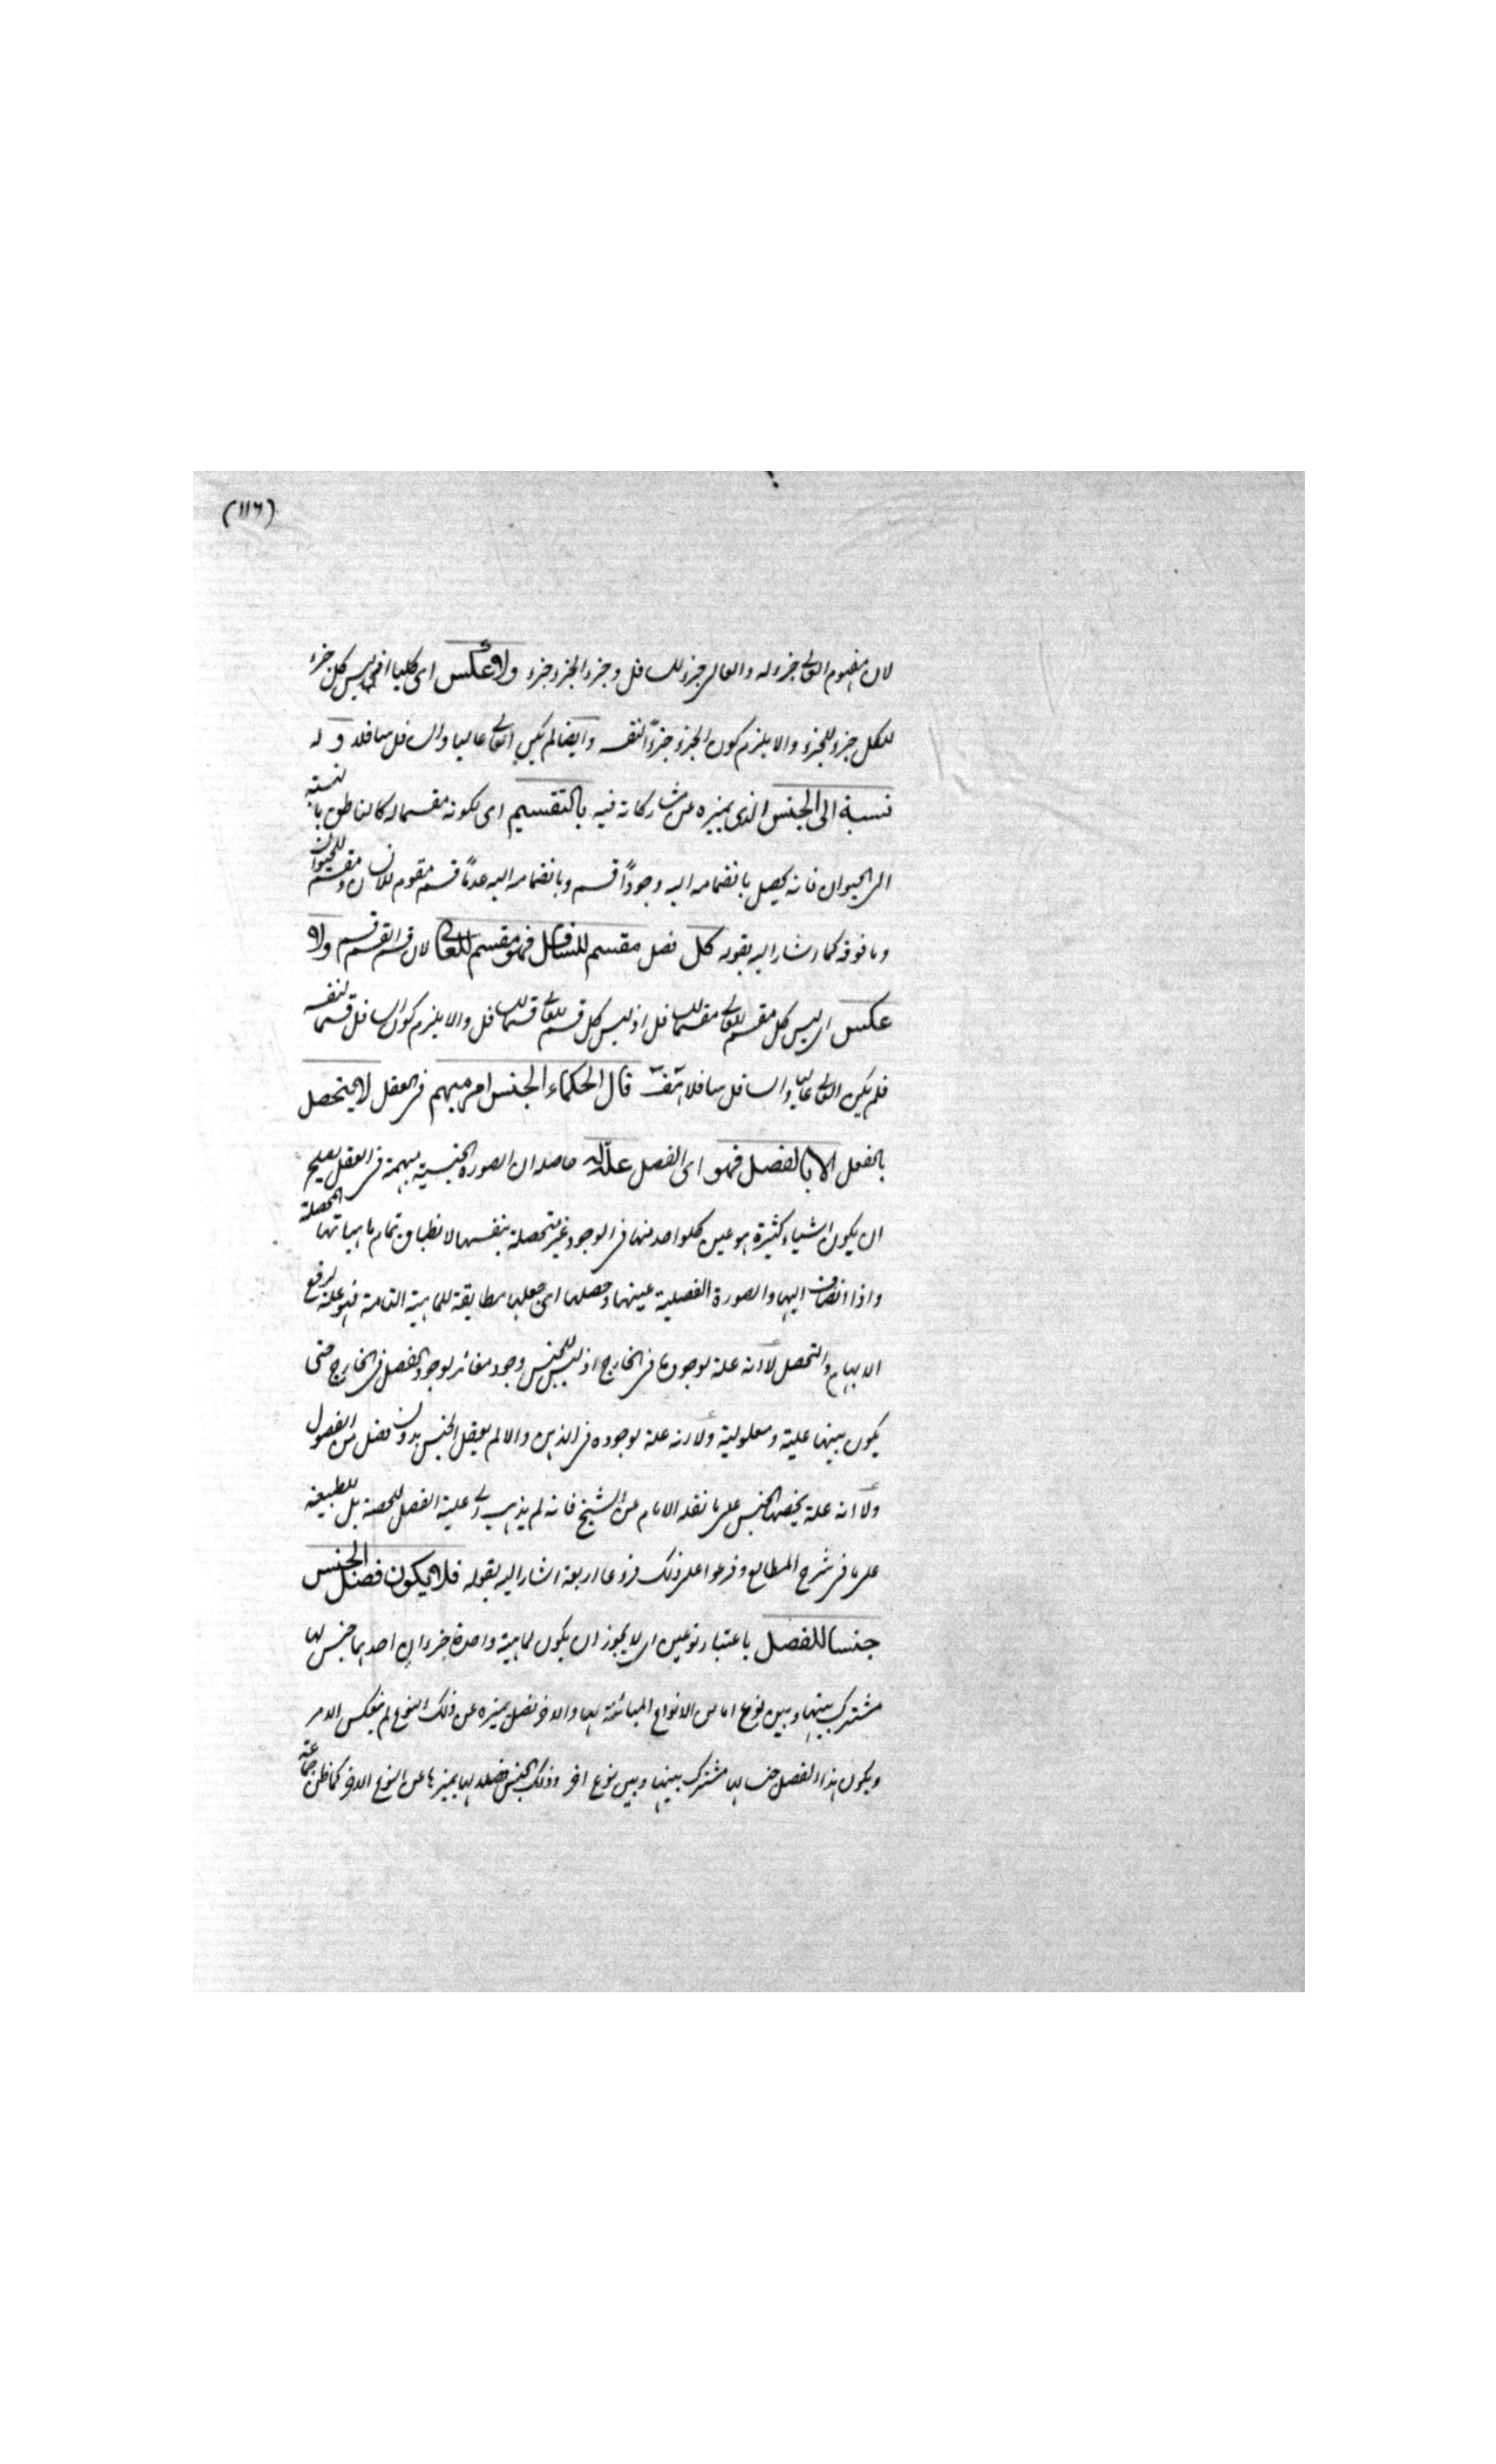 (١١٦)
لان مفهوم العالى جزء له والعالى جزء للسافل وجزء الجزء جزء ولا عكس اى كليا اذ ليس كل جزء
للكل جزء للجزء والا يلزم كون الجزء جزءً لنفسه وايضا لم يكن العالى عاليا والسافل سافلا و له
نسبة الى الجنس الذى يميزه عن مشاركاته فيه بالتقسيم اى لكونه مقسما له كالناطق بالنسبة
الى الحيوان فانه يحصل بانضمامه اليه وجوداً قسم وبانضمامه اليه عدماً قسم مقوم للانسان ومقسم للحيوان
وما فوقه كما اشار اليه بقوله كل فصل مقسم للسافل فهو مقسم للعالى لان قسم القسم قسم ولا
عكس اى ليس كل مقسم للعالى مقسما للسافل اذ ليس كل قسم للعالى قسما للسافل والا يلزم كون السافل قسما لنفسه
فلم يكن العالى عاليا والسافل سافلا قال الحكماء الجنس امر مبهم فى العقل لا يتحصل
بالفعل الا بالفصل فهو اى الفصل علة له حاصله ان الصورة الجنسية مبهمة فى العقل يصلح
ان يكون اشياء كثيرة هو عين كلواحد منها فى الوجود غير متحصلة بنفسها لا نطباق تمام ماهياتها المحصلة
واذا انضاف اليها الصورة الفصلية عينها وحصلها اى جعلها مطابقة للماهية التامة فهو علة لرفع
الابهام والتحصل لا انه علة لوجودها فى الخارج اذ ليس للجنس وجود مغائر لوجود الفصل فى الخارج حتى
يكون بينهما علية ومعلولية ولا انه علة لوجوده فى الذهن والا لم يعقل الجنس بدون فصل من الفصول
ولا انه علة لحصة الجنس على ما نقله الامام عن الشيخ فانه لم يذهب الى علية الفصل للحصة بل للطبيعة
على ما فى شرح المطالع وفرعوا على ذلك فروعا اربعة اشار اليه بقوله فلا يكون فصل الجنس
جنسا للفصل باعتبار نوعين اى لا يجوز ان يكون لماهية واحدة جزءان احدهما جنس لها
مشترك بينها وبين نوع اما من الانواع المبائنة لها والاخر فصل يميزه عن ذلك النوع ثم ينعكس الامر
ويكون هذا الفصل جنسا لها مشترك بينها وبين نوع اخر وذلك الجنس فصلا لها يميزها عن النوع الاخر كما ظن جماعة